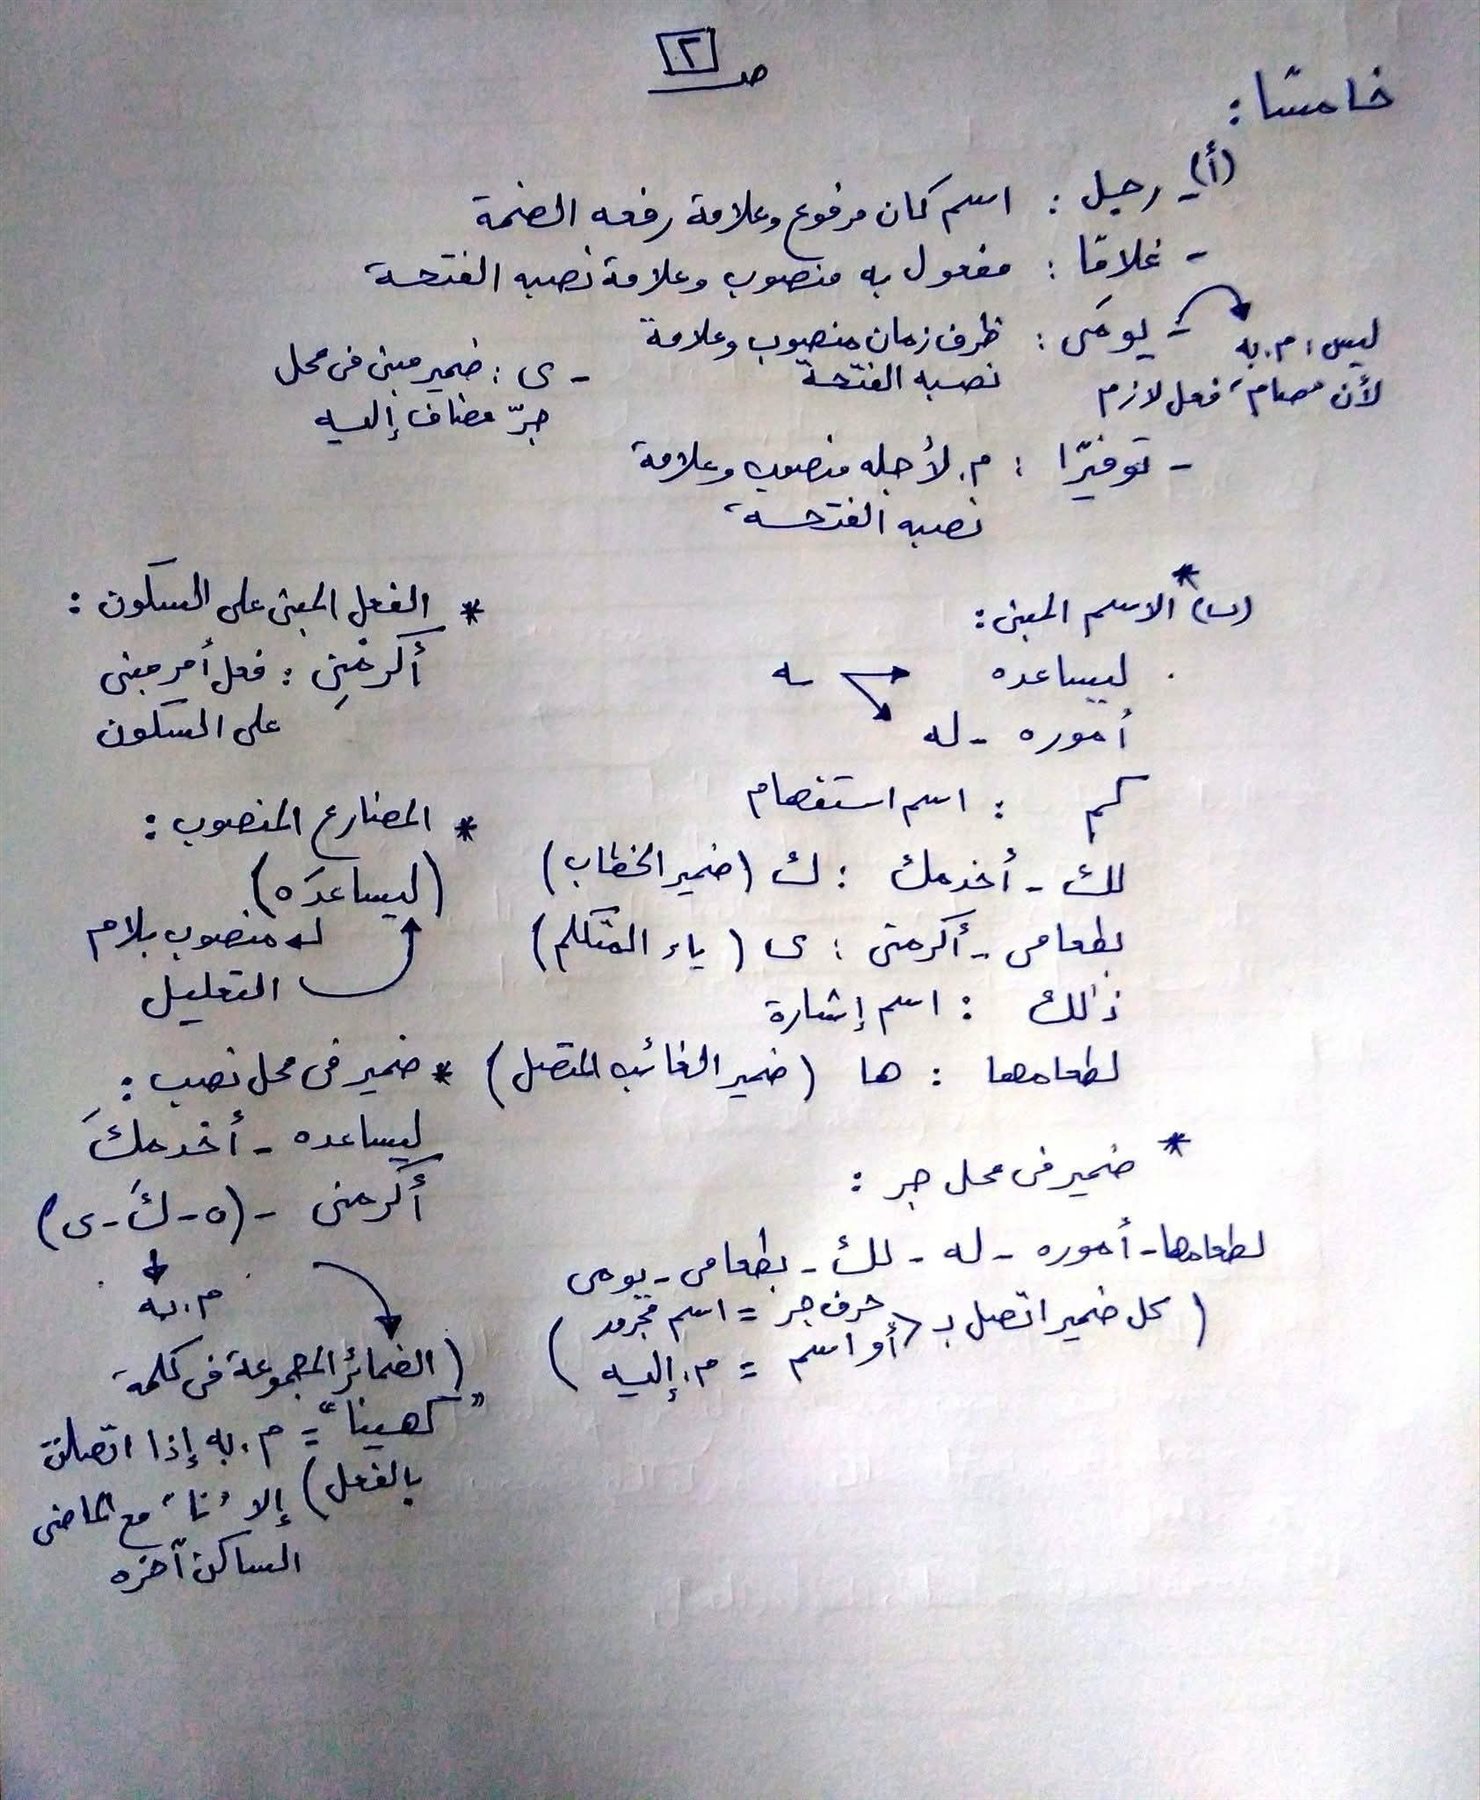 ص ٢
خامسًا :
(أ) - رجل : اسم كان مرفوع وعلامة رفعه الضمة
- غلامًا : مفعول به منصوب وعلامة نصبه الفتحة
- يومَى : ظرف زمان منصوب وعلامة
نصبه الفتحة
ليس م. به
لأن "صام" فعل لازم
- ى : ضمير مبنى فى محل
جرّ مضاف إليه
- توفيرًا : م. لأجله منصوب وعلامة
نصبه الفتحة
(ب) * الاسم المبنى :
ليساعده ـه
أموره - له
كم : اسم استفهام
لك - أخدمك : ك (ضمير الخطاب)
بطعامى - أكرمنى : ى (ياء المتكلم)
ذلك : اسم إشارة
لطعامها : ها (ضمير الغائب المتصل)
* ضمير فى محل جر :
لطعامها - أموره - له - لك - بطعامى - يومى
(كل ضمير اتصل بـ حرف جر = اسم مجرور
أو اسم = م. إليه)
* الفعل المبنى على السكون :
أكرمْنِى : فعل أمر مبنى
على السكون
* المضارع المنصوب :
(ليساعدَه)
منصوب بلام
التعليل
* ضمير فى محل نصب :
ليساعده - أخدمكَ
أكرمنى - (ه - كَ - ى)
م. به
(الضمائر المجموعة فى كلمة
"كهينا" = م. به إذا اتصلت
بالفعل) إلا "نا" مع الماضى
الساكن آخره